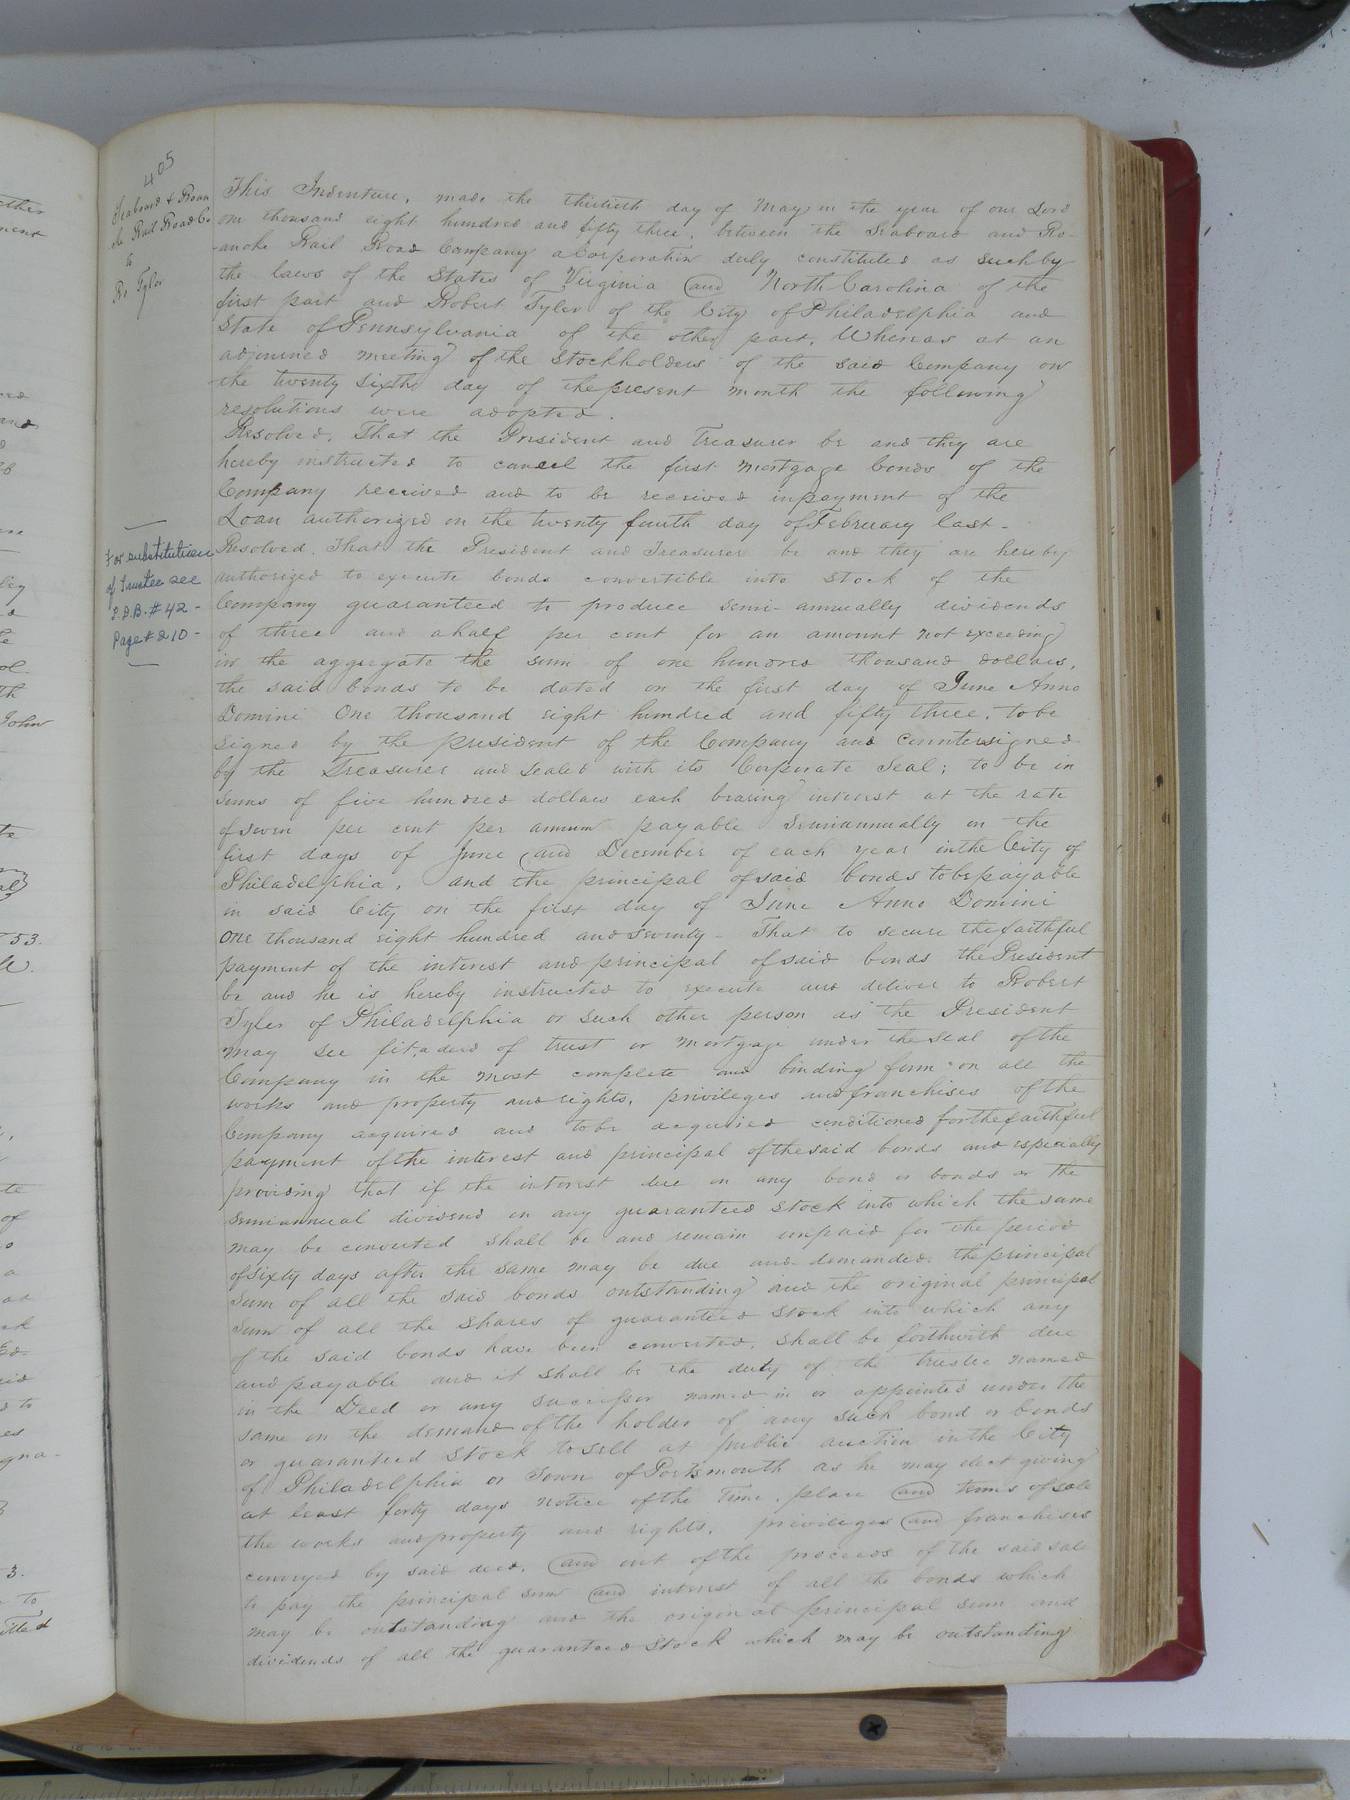 405
Seaboard & Roan
oke Rail Road Co
to
Ro Tyler
This Indenture, made the thirtieth day of May in the year of our Lord
one thousand eight hundred and fifty three, between the Seaboard and Ro-
anoke Rail Road Company a Corporation duly constituted as such by
the laws of the States of Virginia and North Carolina of the
first part and Robert Tyler of the City of Philadelphia and
State of Pennsylvania of the other part, Whereas at an
adjourned meeting of the Stockholders of the said Company on
the twenty sixth day of the present month the following
resolutions were adopted.
Resolved, That the President and Treasurer be and they are
hereby instructed to cancel the first mortgage bonds of the
Company received and to be received in payment of the
Loan authorized on the twenty fourth day of February last-
For substitution
of Trustee see
D.B. #42-
Page #210-
Resolved, That the President and Treasurer be and they are hereby
authorized to execute bonds convertible into Stock of the
Company guaranteed to produce semi-annually dividends
of three and a half per cent for an amount not exceeding
in the aggregate the sum of one hundred thousand dollars,
the said bonds to be dated on the first day of June Anno
Domini One thousand eight hundred and fifty three, to be
Signed by the president of the Company and Countersigned
by the Treasurer and sealed with its Corporate Seal; to be in
sums of five hundred dollars each bearing interest at the rate
of seven per cent per annum payable Semiannually on the
first days of June and December of each year in the City of
Philadelphia, and the principal of said bonds to be payable
in said City on the first day of June Anno Domini
One thousand eight hundred and seventy- That to secure the faithful
payment of the interest and principal of said bonds the President
be and he is hereby instructed to execute and deliver to Robert
Tyler of Philadelphia or such other person as the President
may see fit, a deed of trust or mortgage under the seal of the
Company in the most complete and binding form on all the
works and property and rights, privileges and franchises of the
Company acquired and to be acquired conditioned for the faithful
payment of the interest and principal of the said bonds and especially
providing that if the interest due on any bond or bonds or the
semiannual dividend on any guaranteed stock into which the same
may be converted shall be and remain unpaid for the period
of sixty days after the same may be due and demanded, the principal
sum of all the said bonds outstanding and the original principal
sum of all the shares of guaranteed stock into which any
of the said bonds have been converted, shall be forthwith due
and payable and it shall be the duty of the trustee named
in the Deed or any successor named in or appointed under the
same on the demand of the holder of any such bond or bonds
or guaranteed stock to sell at public auction in the City
of Philadelphia or Town of Portsmouth as he may elect giving
at least forty days notice of the time, place and terms of sale
the works and property and rights, privileges and franchises
conveyed by said deed, and out of the proceeds of the said sale
to pay the principal sum and interest of all the bonds which
may be outstanding and the original principal sum and
dividends of all the guaranteed Stock which may be outstanding